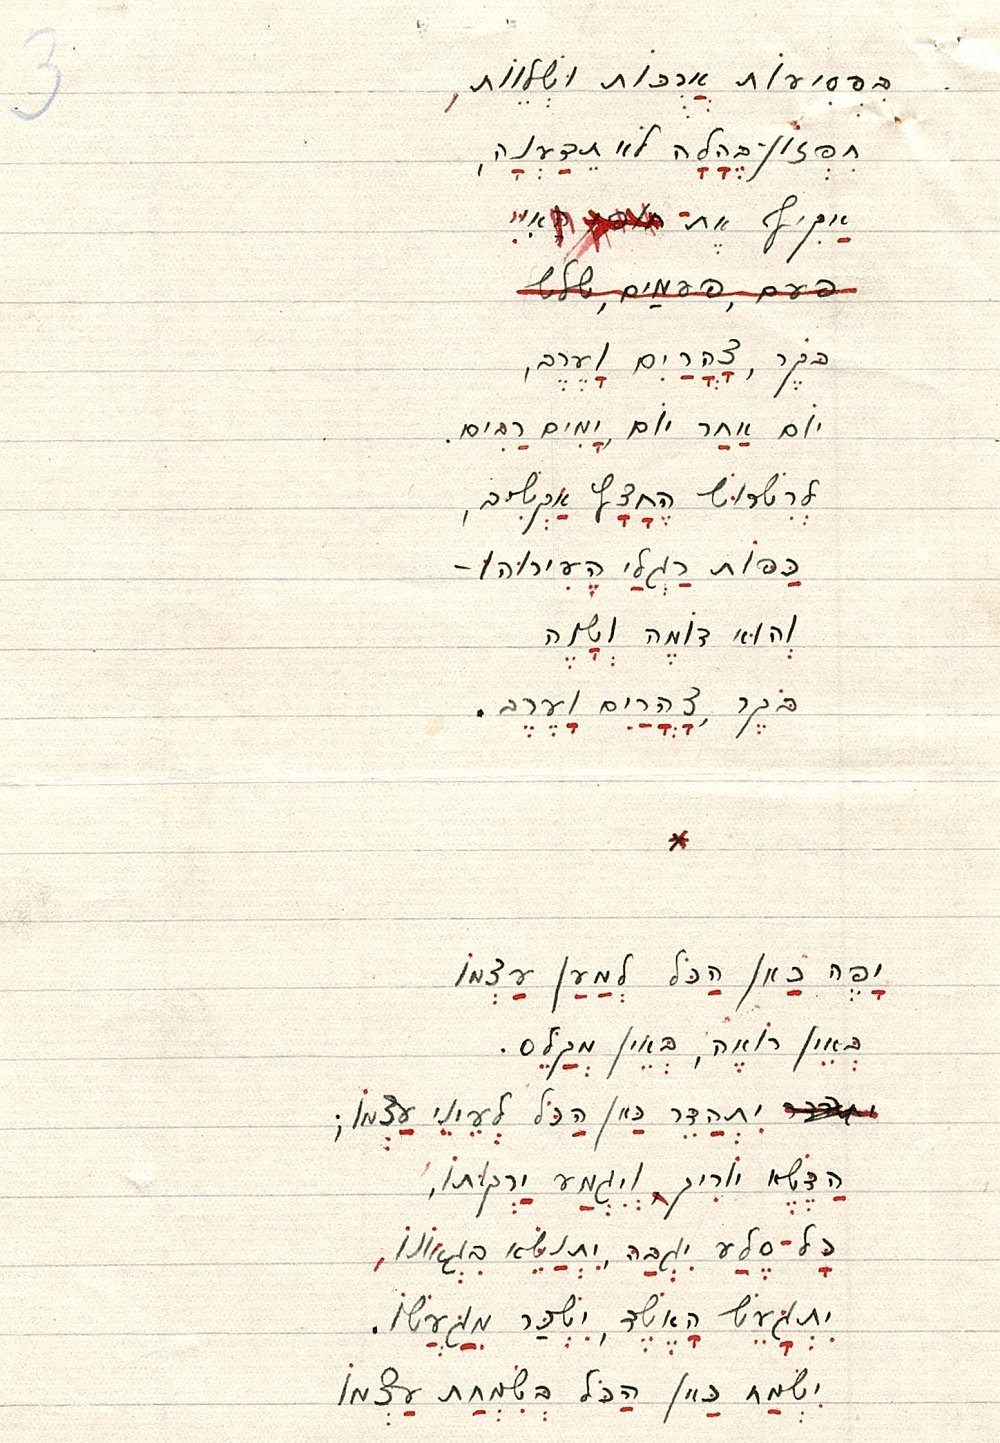 3
בִּפְסִיעוֹת אֲרֻכּוֹת וּשְׁלֵווֹת,
חִפְּזוֹן-בֶּהָלָה לֹא תֵדַעְנָה,
אַקִּיף אֶת-הָאִי
פעם, פעמַים, שלש
בֹּקֶר, צָהֳרַיִם וָעֶרֶב,
יוֹם אַחַר יוֹם, יָמִים רַבִּים.
לְרִשְׁרוּשׁ הֶחָצָץ אַקְשִׁיב,
כַּפּוֹת רַגְלַי הֱעִירוּהוּ –
וְהוּא דוֹמֶה וְשָׁוֶה
בֹּקֶר, צָהֳרַיִם וָעֶרֶב.
*
יָפֶה כַּאן הַכֹּל לְמַעַן עַצְמוֹ
בְּאֵין רוֹאֶה, בְּאֵין מְקַלֵּס.
יִתְהַדֵּר כַּאן הַכֹּל לְעֵינֵי עַצְמוֹ;
הַדֶּשֶׁא יוֹרִיק, וִיגַמַּע יַרְקוּתוֹ,
כָּל-סֶלַע יִגְבַּהּ, יִתְנַשֵּׂא בִּגְאוֹנוֹ,
יִתְגָּעֵשׁ הָאֶשֶׁד, יִשְׁכַּר מִגַּעֲשׁוֹ.
יִשְׂמַח כַּאן הַכֹּל בְּשִׂמְחַת עַצְמוֹ